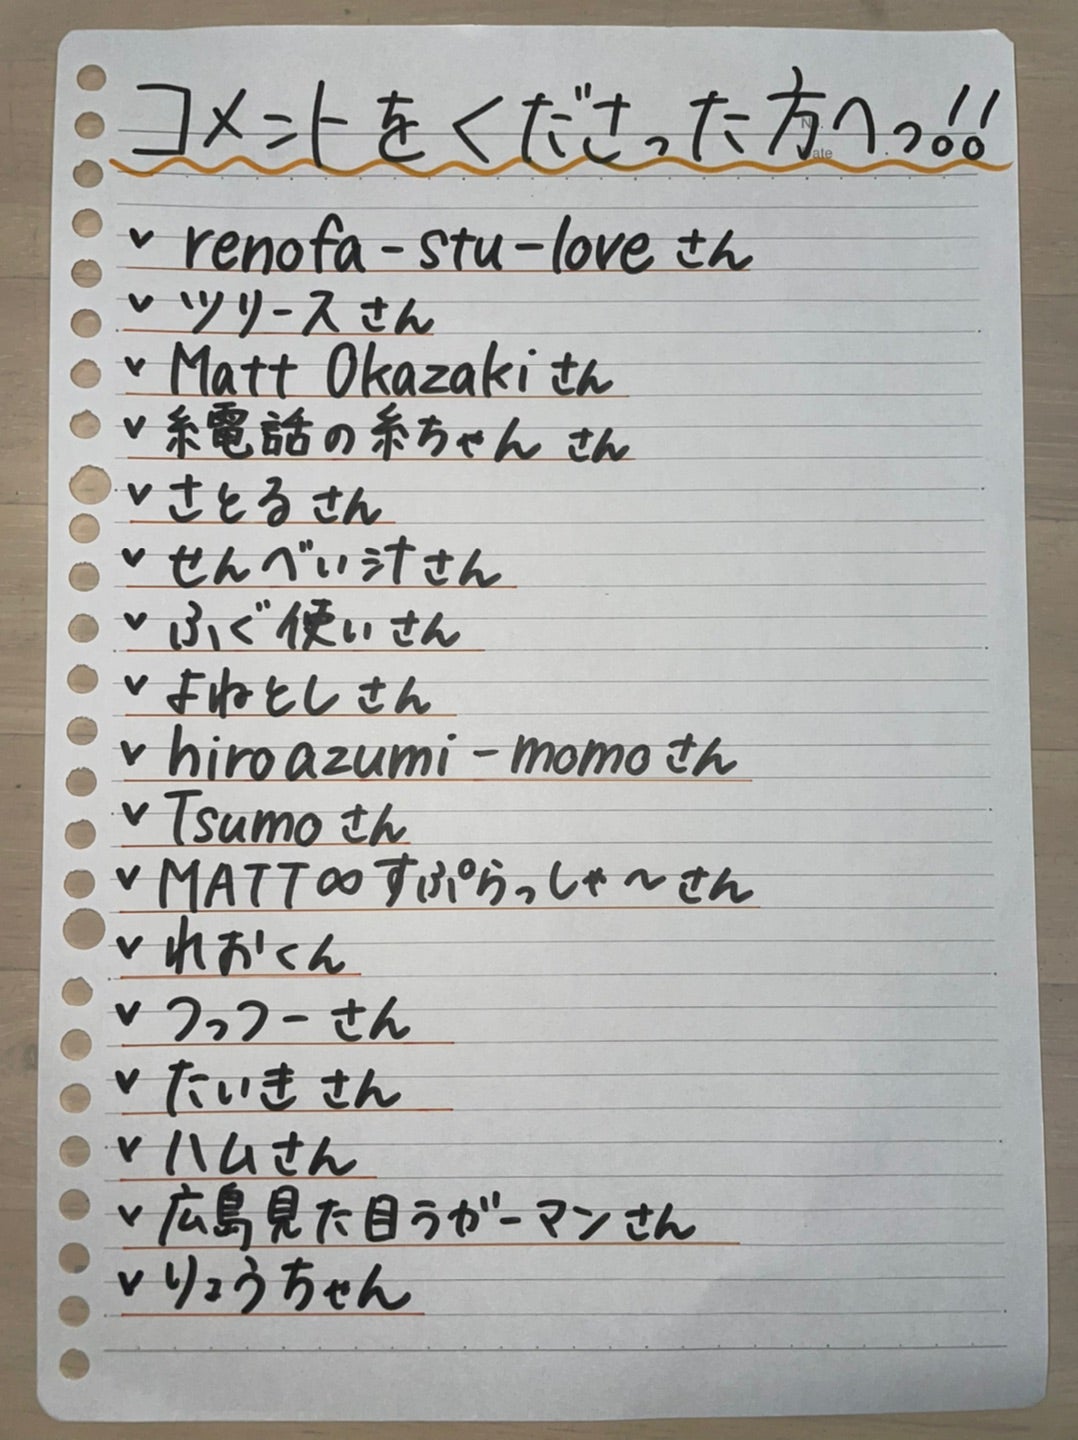 コメントをくださった方へっ!!
No.
Date
✓ renofa-stu-love さん
✓ ツリースさん
✓ Matt Okazaki さん
✓ 糸電話の糸ちゃん さん
✓ さとるさん
✓ せんべい汁さん
✓ ふぐ使いさん
✓ よねとしさん
✓ hiroazumi-momoさん
✓ Tsumoさん
✓ MATT∞すぷらっしゃ〜さん
✓ れおくん
✓ つっつーさん
✓ たいきさん
✓ ハムさん
✓ 広島見た目うガーマンさん
✓ りょうちゃん